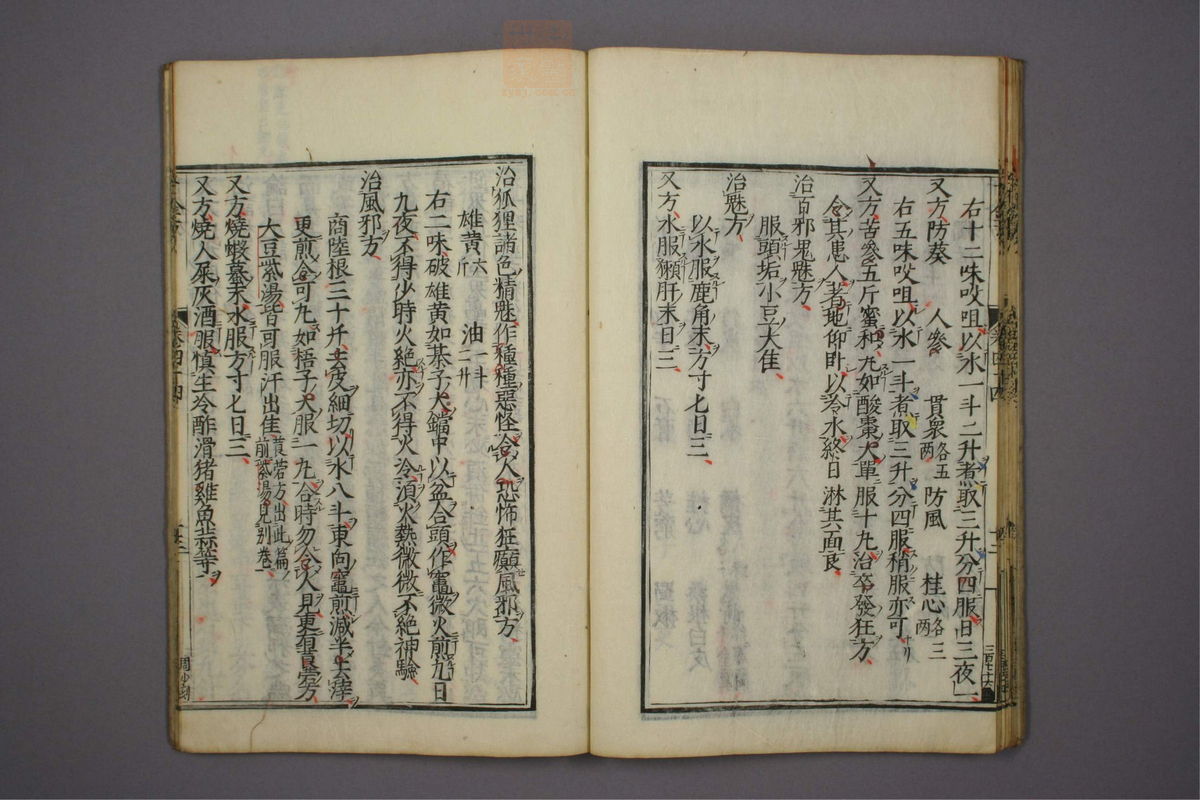 右十二味㕮咀以水一斗二升煮取三升分四服日三夜一
又方防葵 人參 貫衆各五兩 防風 桂心各三兩
右五味㕮咀以水一斗煮取三升分四服稍服亦可
又方苦參五斤蜜和丸如酸棗大單服十丸治卒發狂方
令其患人著地仰臥以冷水終日淋其面良
治百邪鬼魅方
服頭垢小豆大佳
治魅方
以水服鹿角末方寸匕日三
又方水服獺肝末日三
治狐狸諸色精魅作種種惡怪令人恐怖狂癲風邪方
雄黄六斤 油一斗二升
右二味破雄黄如棊子大鐺中以盆合頭作竈微火煎九日
九夜不得少時火絶亦不得火冷湏火熱微微不絶神驗
治風邪方
商陸根三十斤去皮細切以水八斗東向竈煎減半去滓
更煎令可丸如梧子大服一丸合時勿令人見更有莨菪方
大豆紫湯皆可服汗出佳莨菪方出此篇前紫湯見别卷
又方燒蝦蟇末水服方寸匕日三
又方燒人屎灰酒服慎生冷酢滑猪雞魚蒜等